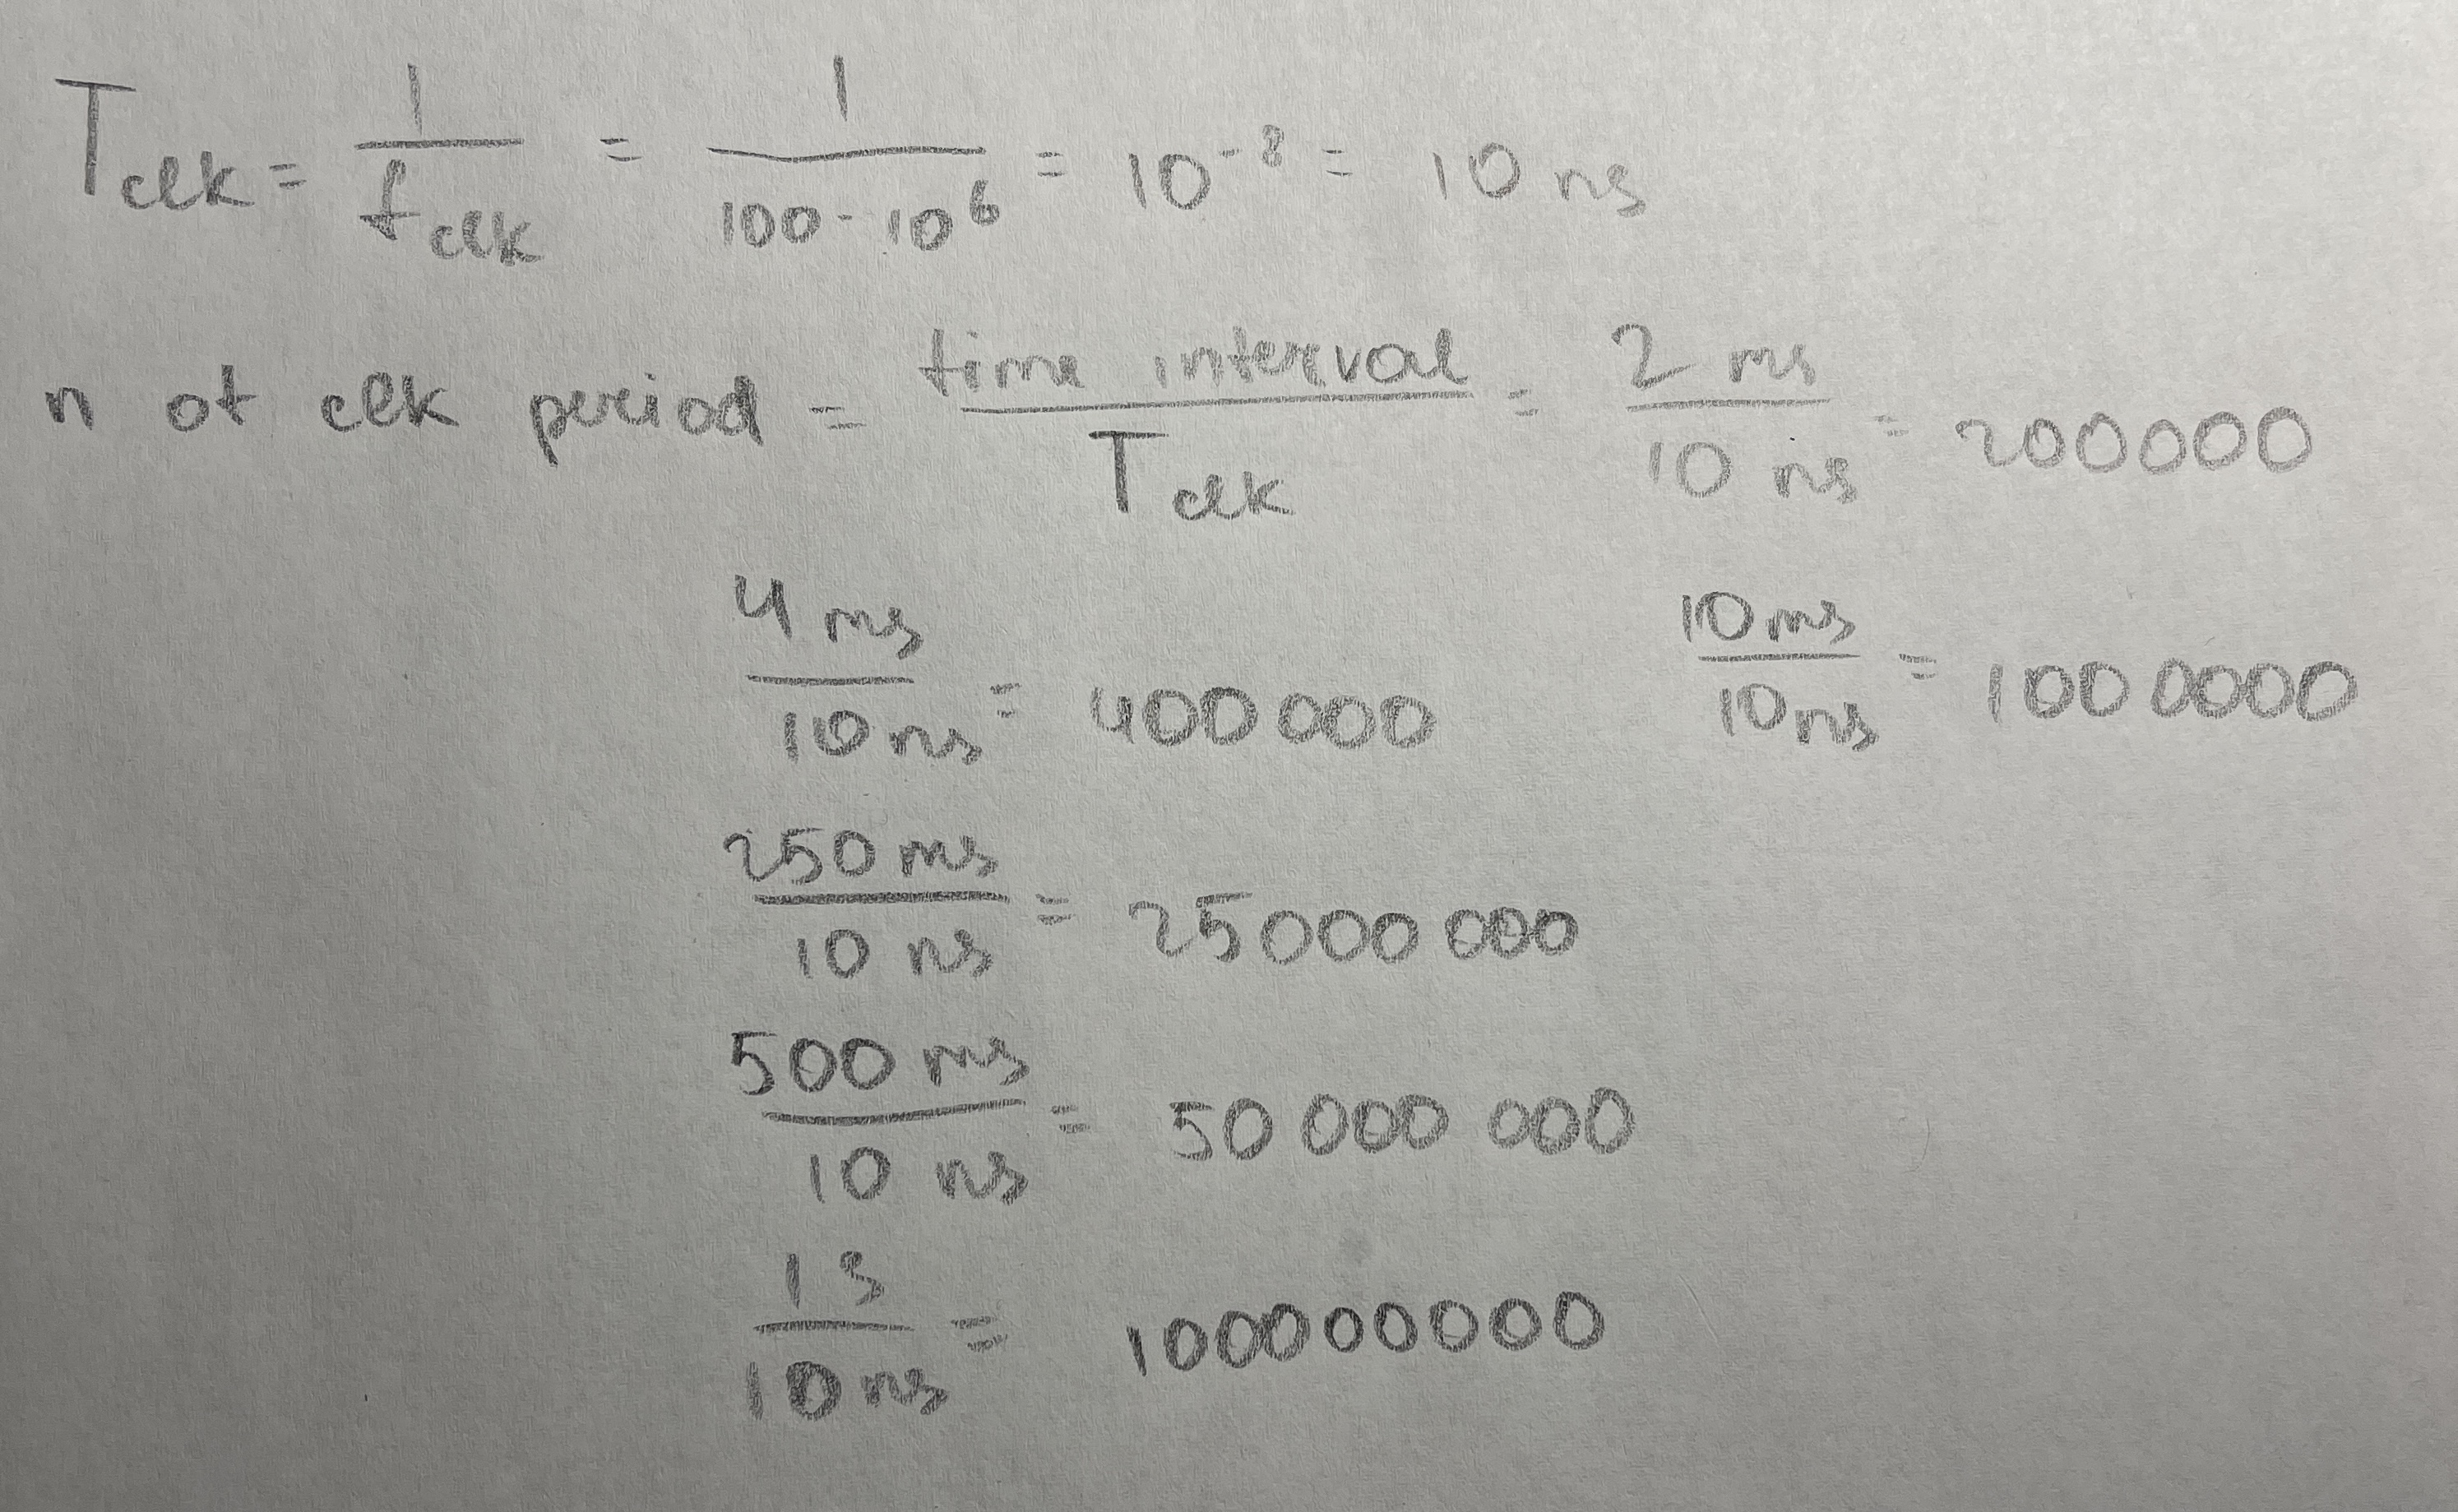 T_clk = 1/f_clk = 1/(100 · 10^6) = 10^-8 = 10 ns
n of clk period = time interval/T_clk = 2 ms/10 ns = 200000
4 ms/10 ns = 400 000    10 ms/10 ns = 100 0000
250 ms/10 ns = 25000 000
500 ms/10 ns = 50 000 000
1 s/10 ns = 100000000